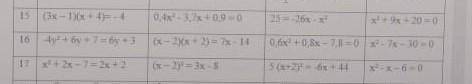 15 (3x – 1)(x + 4)= – 4 0,4x² - 3,7x + 0,9 = 0 25 = -26x - x² x² + 9x + 20 = 0
16 -4y² + 6y + 7 = 6y + 3 (x - 2)(x + 2) = 7x - 14 0,6x² + 0,8x – 7,8 = 0 x² - 7x - 30 = 0
17 x² + 2x – 7 = 2x + 2 (x – 2)² = 3x - 8 5 (x+2)² = -6x + 44 x² - x – 6 = 0